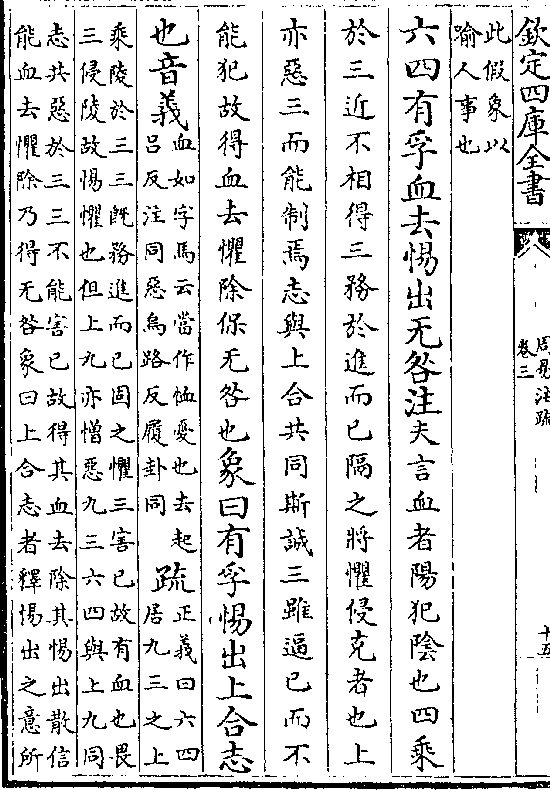 欽定四庫全書
周易注疏
卷三
十五
此假象以
喻人事也
六四有孚血去惕出无咎注夫言血者陽犯陰也四乘
於三近不相得三務於進而已隔之將懼侵克者也上
亦惡三而能制焉志與上合共同斯誠三雖逼已而不
能犯故得血去懼除保无咎也象曰有孚惕出上合志
也音義血如字馬云當作恤憂也去起
吕反注同惡烏路反履卦同
疏正義曰六四
居九三之上
乘陵於三三既務進而已固之懼三害已故有血也畏
三侵陵故惕懼也但上九亦憎惡九三六四與上九同
志共惡於三三不能害已故得其血去除其惕出散信
能血去懼除乃得无咎象曰上合志者釋惕出之意所